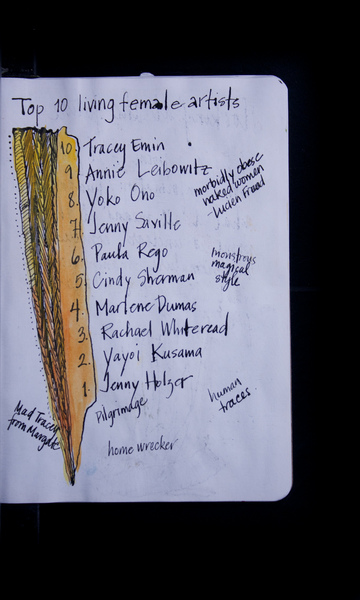 Top 10 living female artists
10. Tracey Emin
9 Annie Leibowitz
8. Yoko Ono
7. Jenny Saville
morbidly obese
naked women
-Lucien Freud
6. Paula Rego
5. Cindy Sherman
monstrous
magical
style
4. Marlene Dumas
3. Rachael Whiteread
2. Yayoi Kusama
1. Jenny Holzer
human
traces
Pilgrimage
Mad Tracey
from Margate
home wrecker